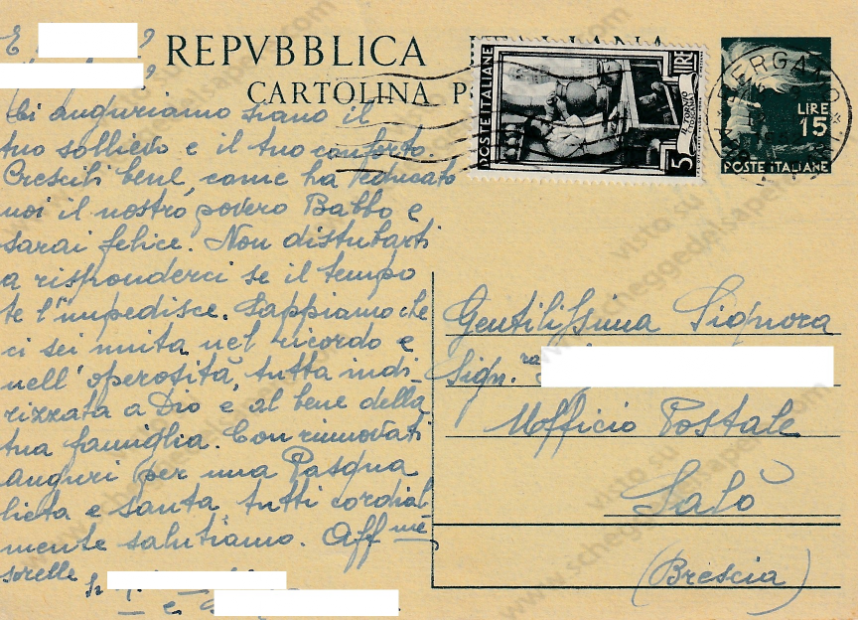 E ?
REPVBBLICA ITALIANA
CARTOLINA P
?
POSTE ITALIANE
LIRE
5
IL TORNIO
VERGATO
LIRE
15
POSTE ITALIANE
ti auguriamo siano il
tuo sollievo e il tuo conforto.
Crescili bene, come ha educato
noi il nostro povero Babbo e
sarai felice. Non disturbarti
a risponderci se il tempo
te l'impedisce. Sappiamo che
ci sei unita nel ricordo e
nell'operosità, tutta indi-
rizzata a Dio e al bene della
tua famiglia. Con rinnovati
auguri per una Pasqua
lieta e santa, tutti cordial
mente salutiamo. Aff me
sorelle
e
Gentilissima Signora
Sign.ra
Ufficio Postale
Salò
(Brescia)
visto su
www.scheggedelsapere.com